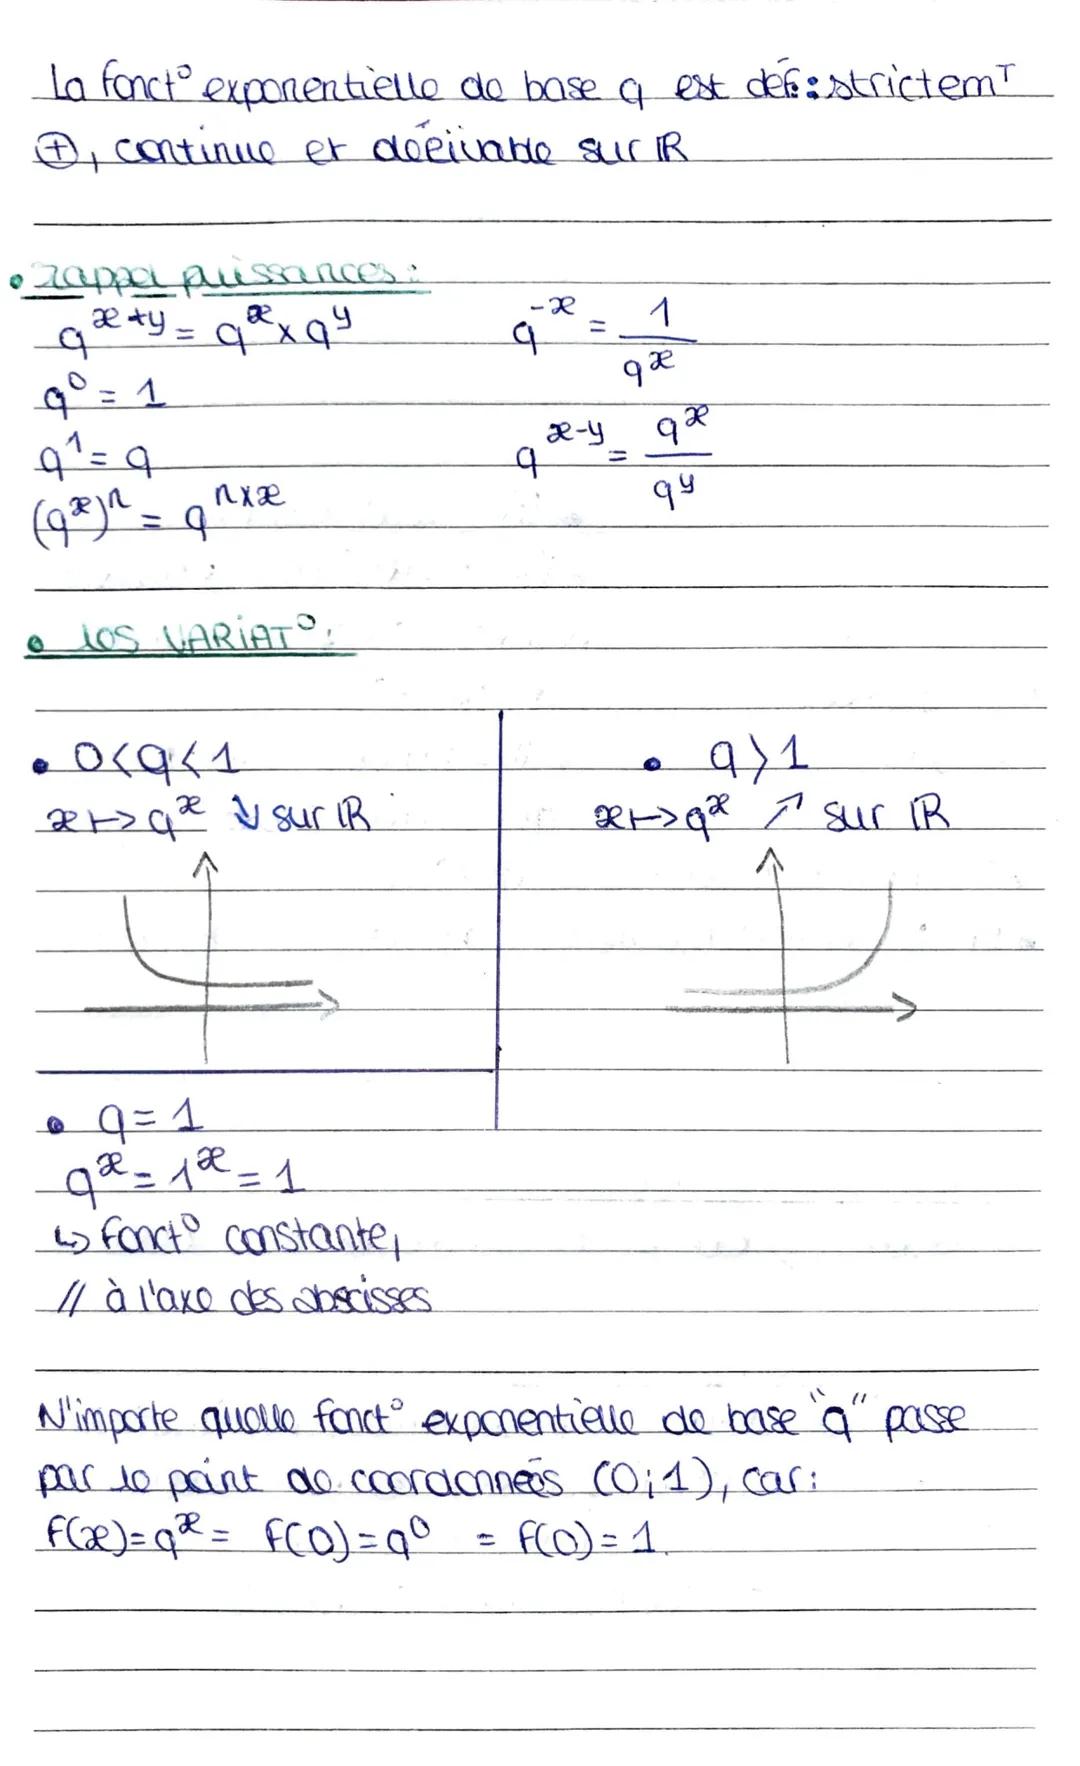 La fonct° exponentielle de base q est déf : strictemᵀ
⊕, continue et dérivable sur ℝ
• rappel puissances :
q^{x+y} = q^x × q^y    q^{-x} = 1/q^x
q^0 = 1
q^1 = q    q^{x-y} = q^x/q^y
(q^x)^n = q^{n×x}
• les VARIAT° :
• 0<q<1    • q>1
x↦q^x ↘ sur ℝ    x↦q^x ↗ sur ℝ
• q = 1
q^x = 1^x = 1
↳ fonct° constante,
// à l'axe des abscisses
N'importe quelle fonct° exponentielle de base "q" passe
par le point de coordonnées (0;1), car :
f(x) = q^x = f(0) = q^0 = f(0) = 1.